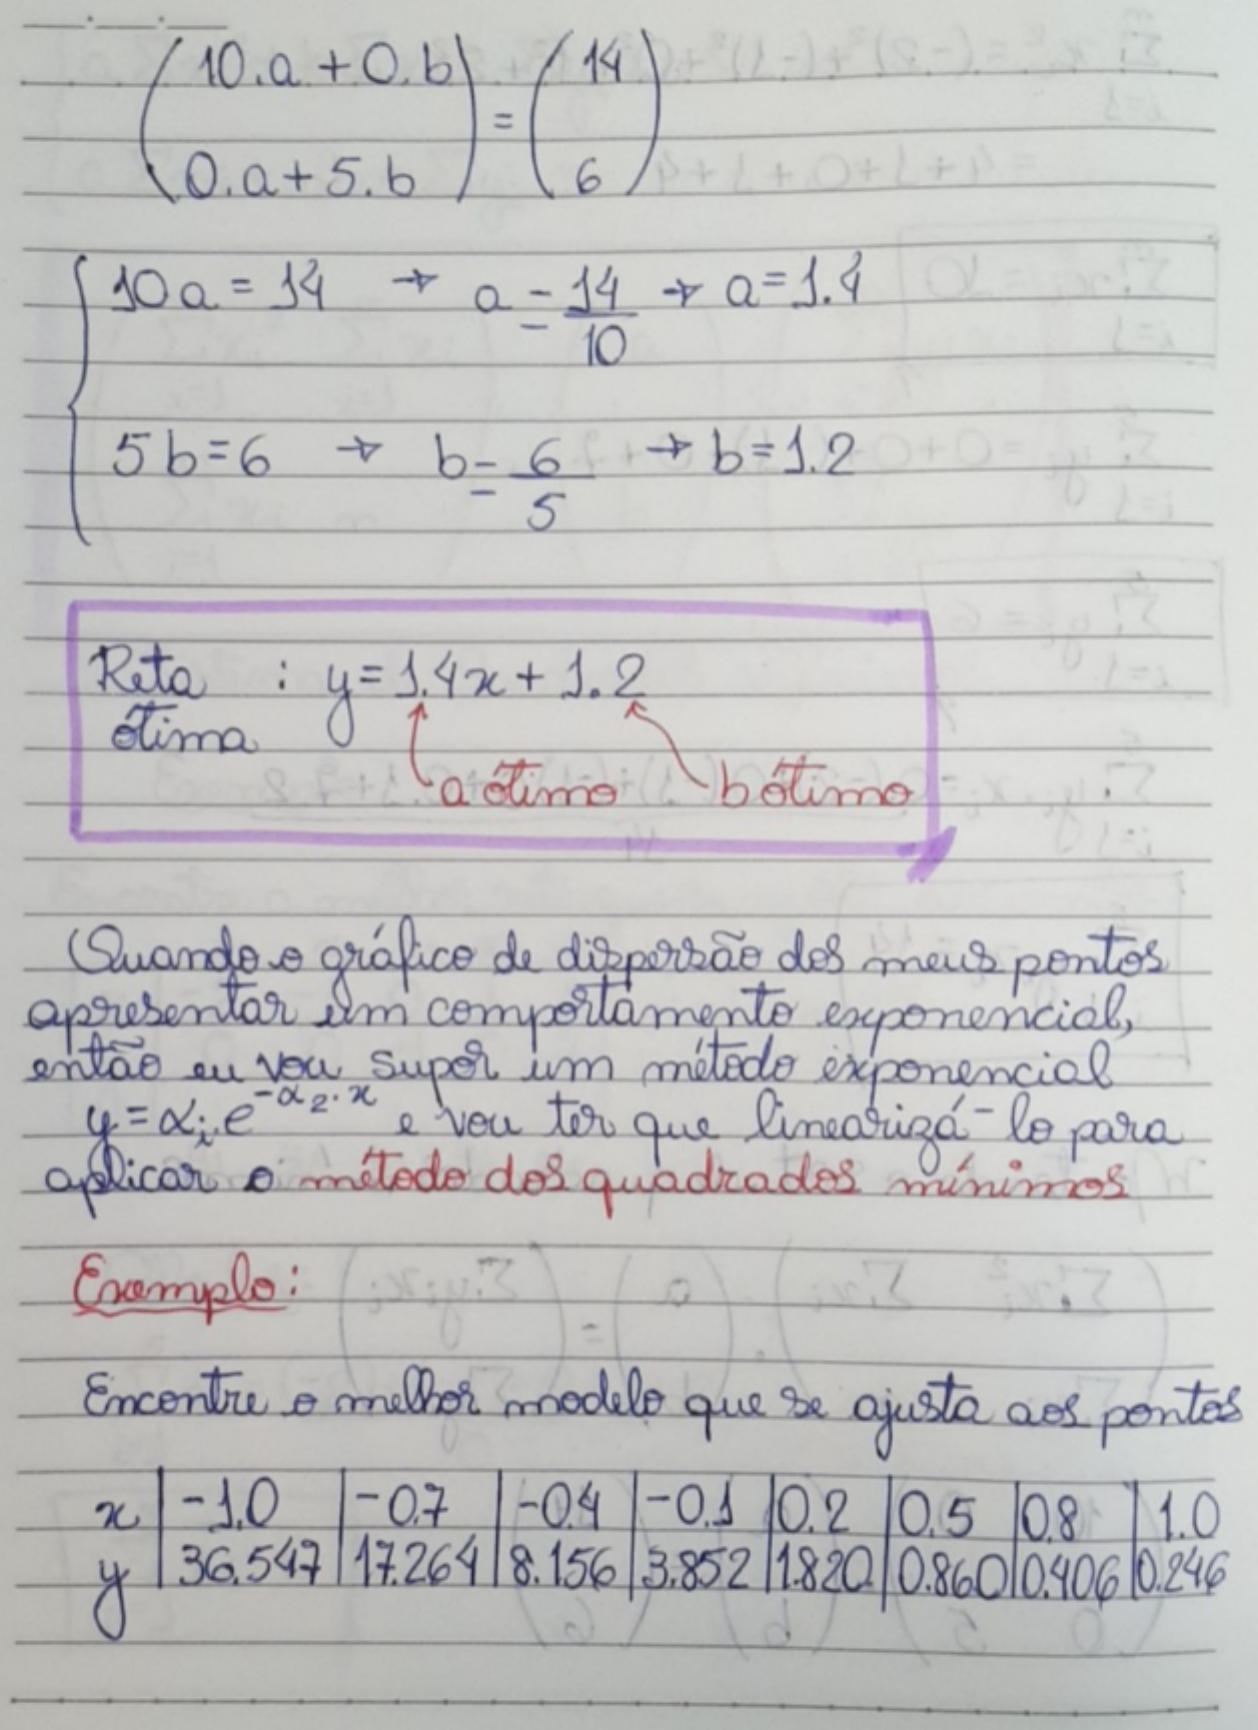 (10.a + 0.b) = (14)
(0.a + 5.b) (6)
{ 10a = 14 → a = 14/10 → a = 1.4
5b = 6 → b = 6/5 → b = 1.2
Reta : y = 1.4x + 1.2
ótima
a ótimo b ótimo
Quando o gráfico de dispersão dos meus pontos
apresentar um comportamento exponencial,
então eu vou supor um método exponencial
y = αi.e^-α2.x e vou ter que linearizá-lo para
aplicar o método dos quadrados mínimos
Exemplo:
Encontre o melhor modelo que se ajusta aos pontos
x | -1.0 | -0.7 | -0.4 | -0.1 | 0.2 | 0.5 | 0.8 | 1.0
y | 36.547 | 17.264 | 8.156 | 3.852 | 1.820 | 0.860 | 0.406 | 0.246